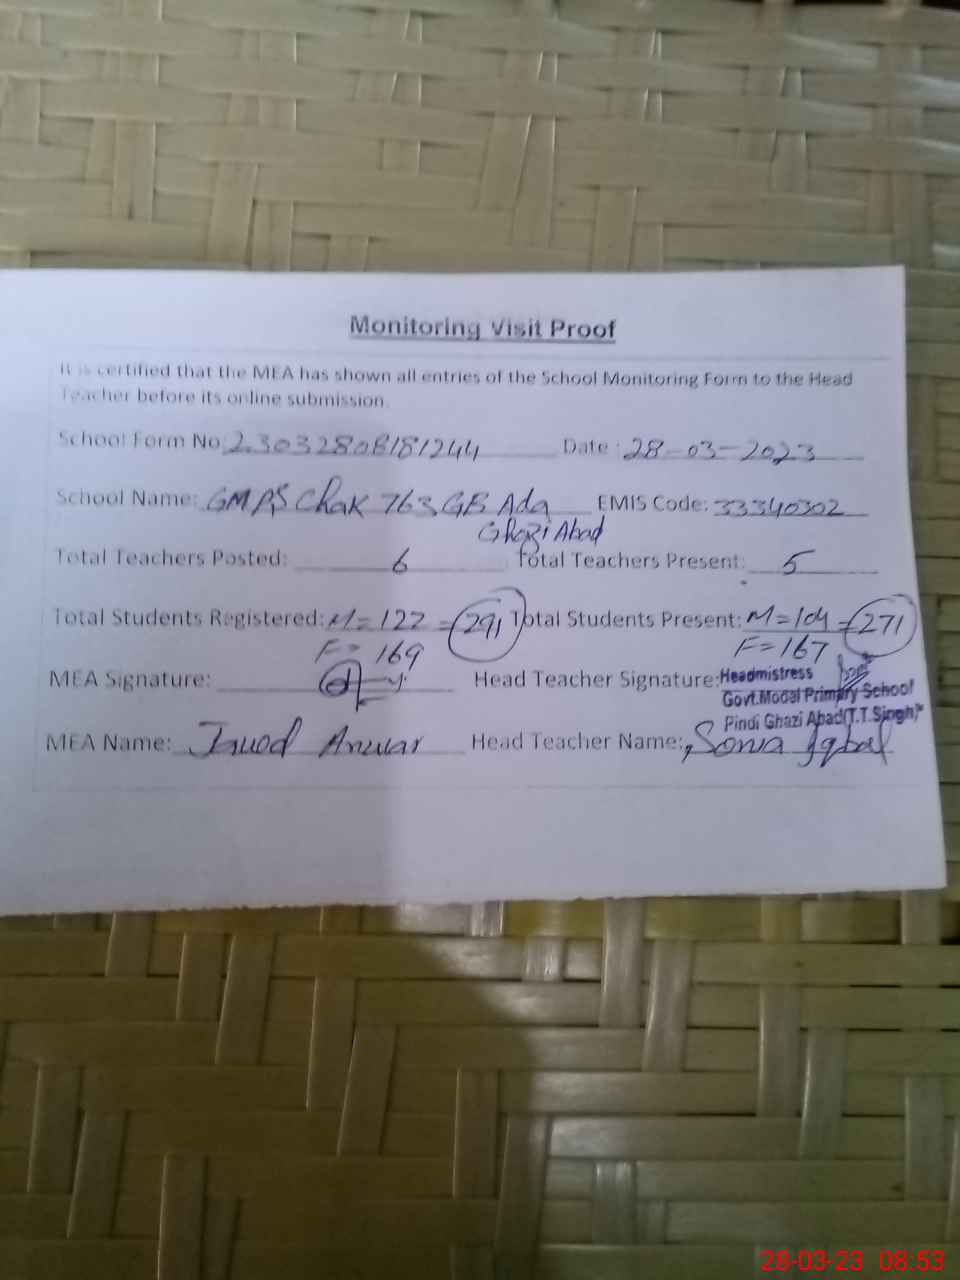 Monitoring Visit Proof
It is certified that the MEA has shown all entries of the School Monitoring Form to the Head
Teacher before its online submission.
School Form No: 23032808181244 Date : 28-03-2023
School Name: GMPS Chak 763 GB Ada EMIS Code: 33340302
Ghazi Abad
Total Teachers Posted: 6 Total Teachers Present: 5
Total Students Registered: M=122 = 291 Total Students Present: M=104 = 271
F= 169 F=167
MEA Signature: Head Teacher Signature: Headmistress
Govt.Modal Primary School
Pindi Ghazi Abad(T.T.Singh)
MEA Name: Anwar Head Teacher Name: Sonia Iqbal
28-03-23 08:53